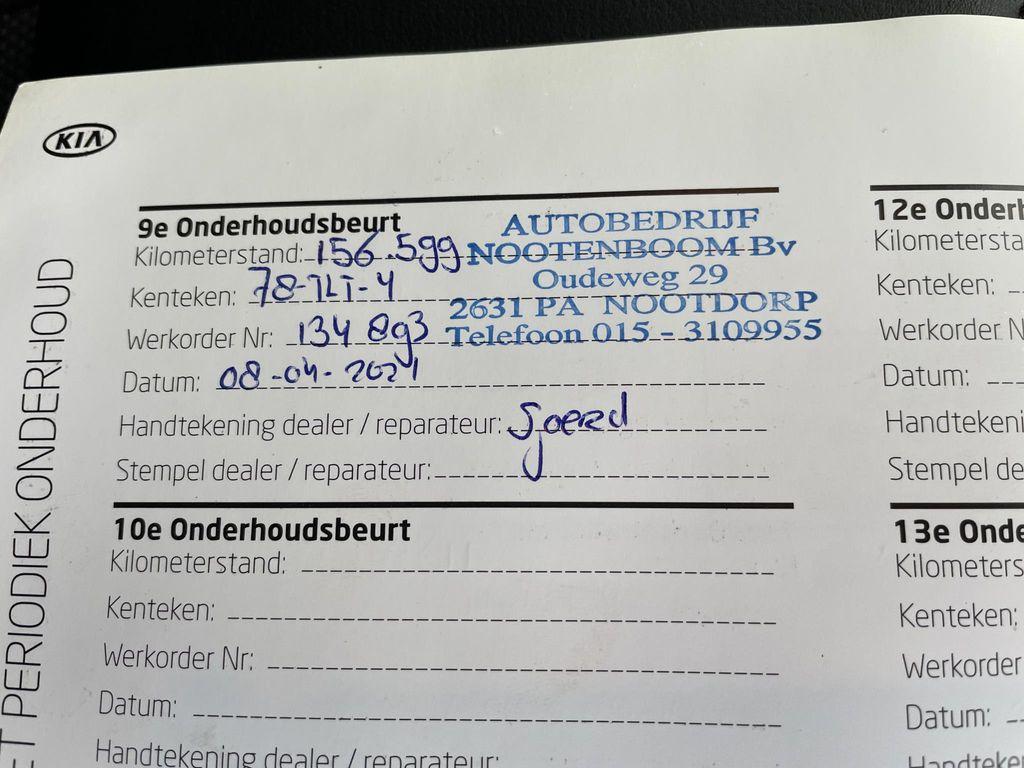 KIA
9e Onderhoudsbeurt
Kilometerstand: 156.599
Kenteken: 78-TLT-4
Werkorder Nr: 134893
Datum: 08-04-2021
Handtekening dealer / reparateur: Sjoerd
Stempel dealer / reparateur:
AUTOBEDRIJF
NOOTENBOOM Bv
Oudeweg 29
2631 PA NOOTDORP
Telefoon 015 - 3109955
10e Onderhoudsbeurt
Kilometerstand:
Kenteken:
Werkorder Nr:
Datum:
Handtekening dealer / reparateur:
12e Onderh
Kilometersta
Kenteken:
Werkorder N
Datum:
Handtekeni
Stempel de
13e Onde
Kilometers
Kenteken:
Werkorder
Datum:
Handteke
T PERIODIEK ONDERHOUD